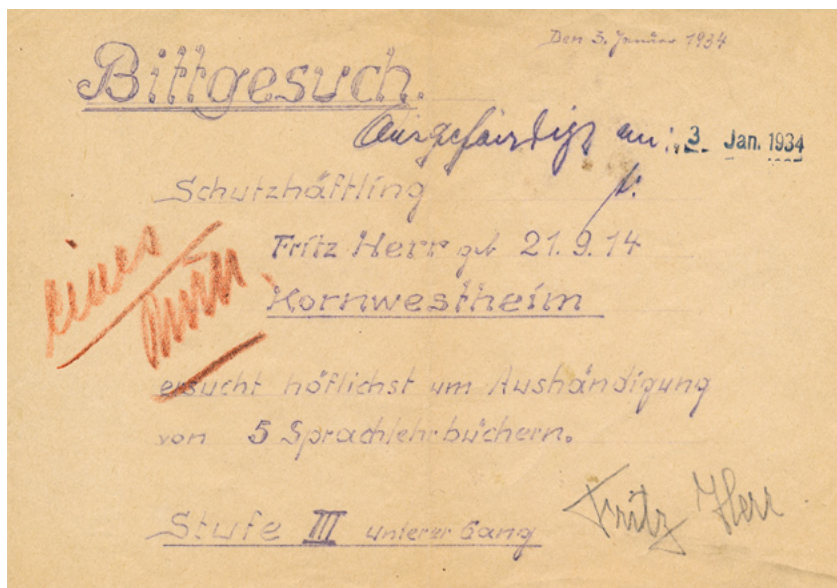 Den 3. Januar 1934
Bittgesuch.
Ausgehändigt am: 3. Jan. 1934
Schutzhäftling
Fritz Herr geb 21.9.14
Kornwestheim
ersucht höflichst um Aushändigung
von 5 Sprachlehrbüchern.
Stufe III unterer Gang
Fritz Herr